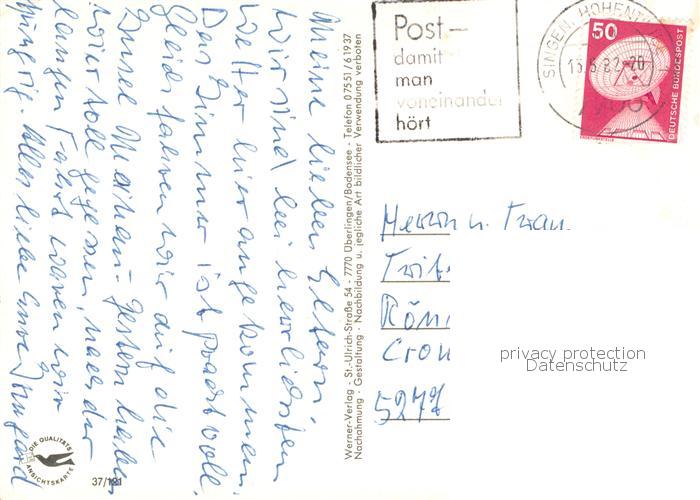 Meine lieben Eltern.
Wir sind bei herrlichsten
Wetter hier angekommen.
Das Zimmer ist prachtvoll.
Gleich fahren wir auf die
Insel Mainau. Gestern haben
wir toll gegessen, nach der
langen Fahrt waren wir
hungrig. Alles liebe Eure Irmgard
DIE QUALITÄTS
ANSICHTSKARTE
37/121
Werner-Verlag - St.-Ulrich-Straße 54 - 7770 Überlingen/Bodensee - Telefon 07551/61937
Nachahmung · Gestaltung · Nachbildung u. jegliche Art bildlicher Verwendung verboten
Post –
damit
man
voneinander
hört
SINGEN, HOHENTW
13.5.82-20
50
DEUTSCHE BUNDESPOST
Herrn u. Frau
Crou
527
privacy protection
Datenschutz